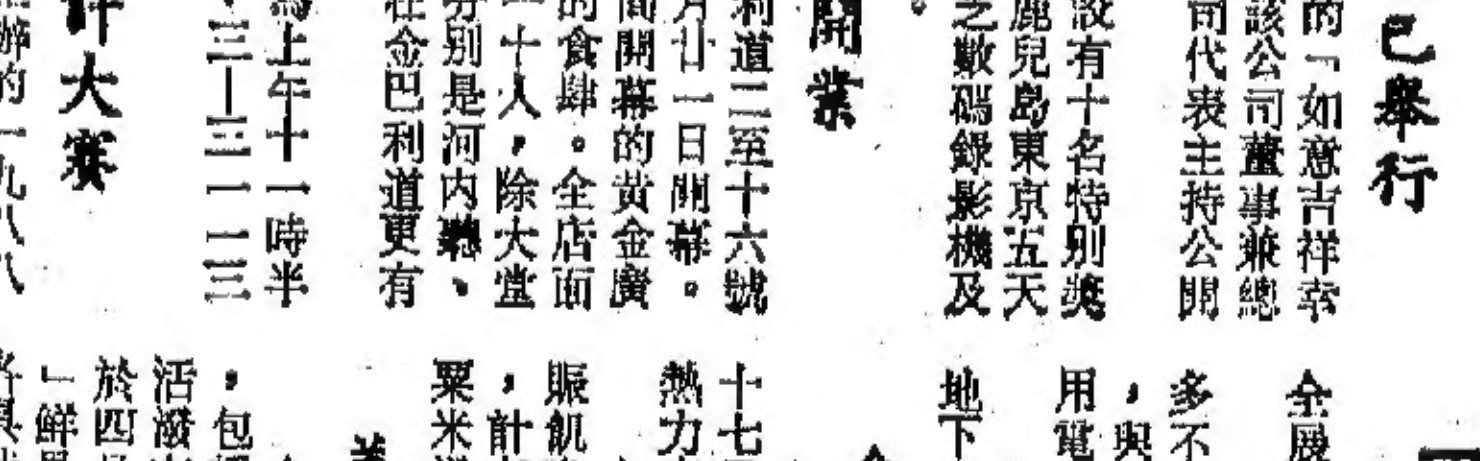 已舉行
的「如意吉祥幸
該公司董事兼總
司代表主持公開
設有十名特別獎
鹿兒島東京五天
之數碼錄影機及
開業
利道二至十六號
月廿一日開幕。
間開幕的黃金廣
的食肆。全店面
一十人，除大堂
分別是河內廳、
在金巴利道更有
為上午十一時半
三—三一一三
計大賽
辦的一九八八
全展
多不
，與
用電
地下
十七
熱力
賑飢
，計
粟米
，包
活潑
於四
「鮮